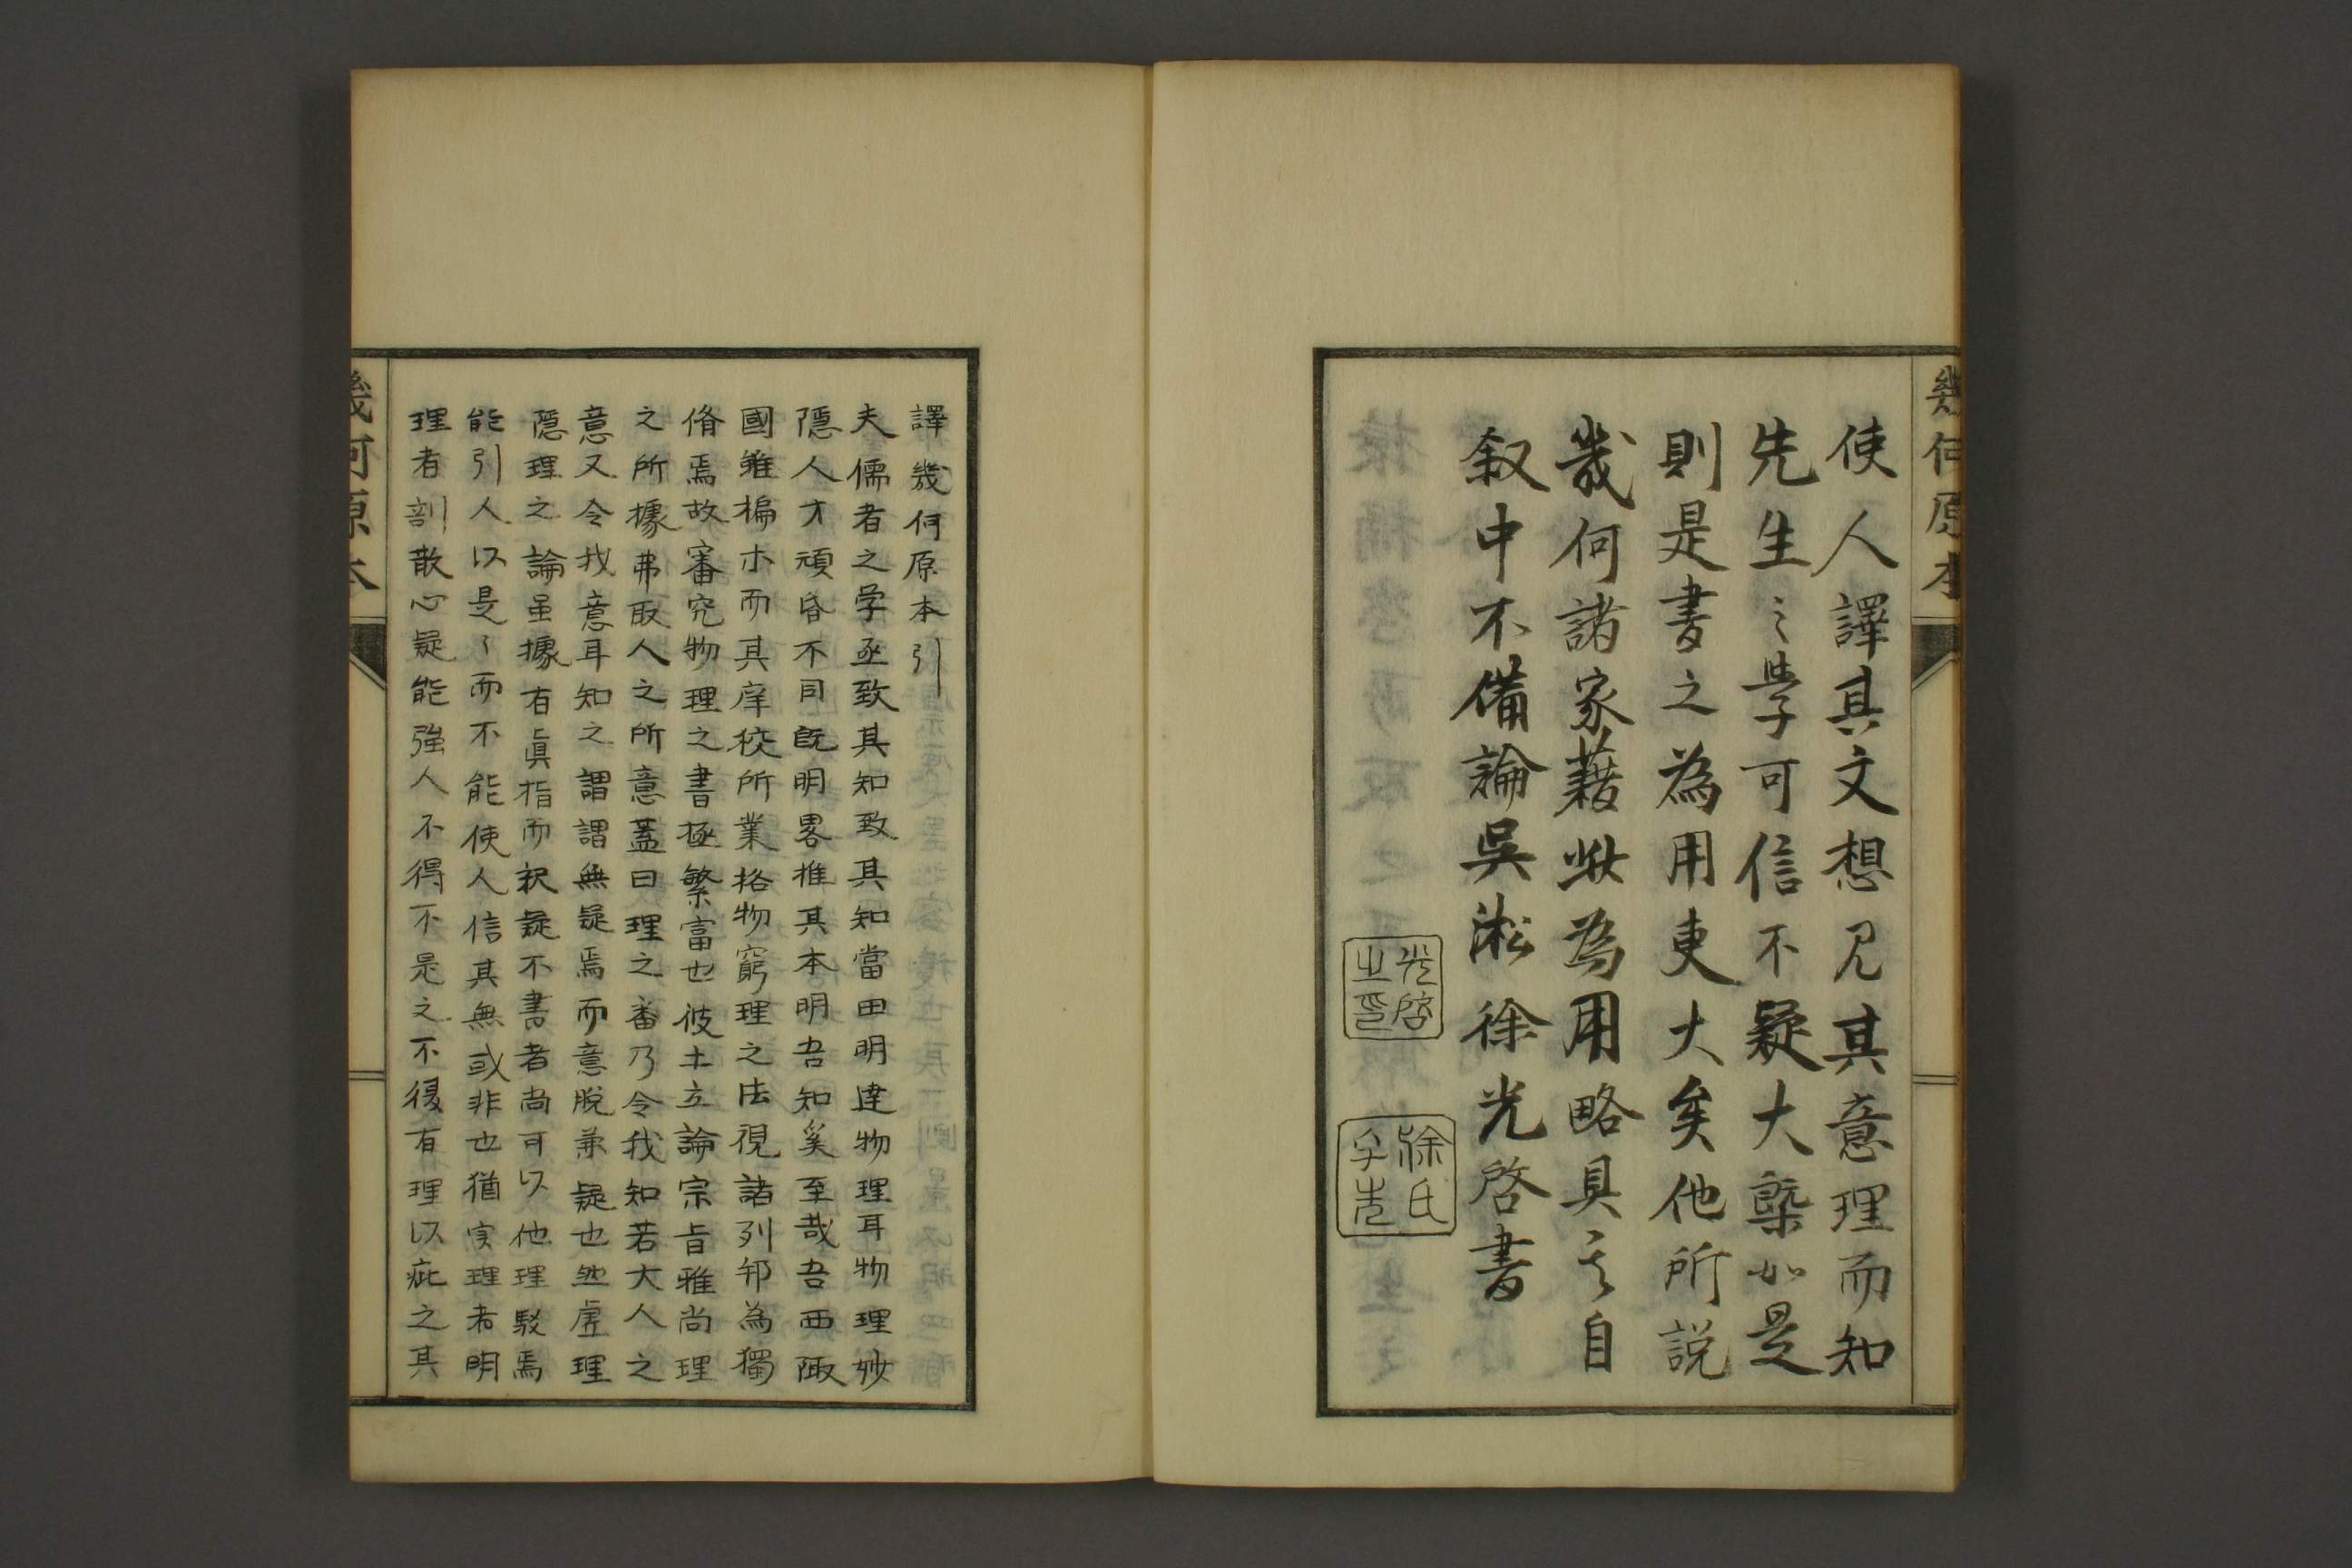 幾何原本
使人譯其文想見其意理而知
先生之學可信不疑大槩如是
則是書之為用更大矣他所說
幾何諸家藉此為用略具其自
叙中不備論吳淞徐光啓書
光啓之印
徐氏子先
譯幾何原本引
夫儒者之学亟致其知致其知當田明達物理耳物理妙
隱人才頑昏不同旣明畧推其本明吾知奚至哉吾西陬
國雖褊小而其庠校所業格物窮理之法視諸列邦為獨
脩焉故審究物理之書極繁富也彼土立論宗旨雅尚理
之所據弗取人之所意蓋曰理之審乃令我知若夫人之
意又令我意耳知之謂謂無疑焉而意脫兼疑也然虛理
隱理之論虽據有眞指而釈疑不書者尚可以他理駁焉
能引人以是〻而不能使人信其無或非也猶实理者明
理者剖散心疑能強人不得不是之不復有理以疵之其
幾何原本